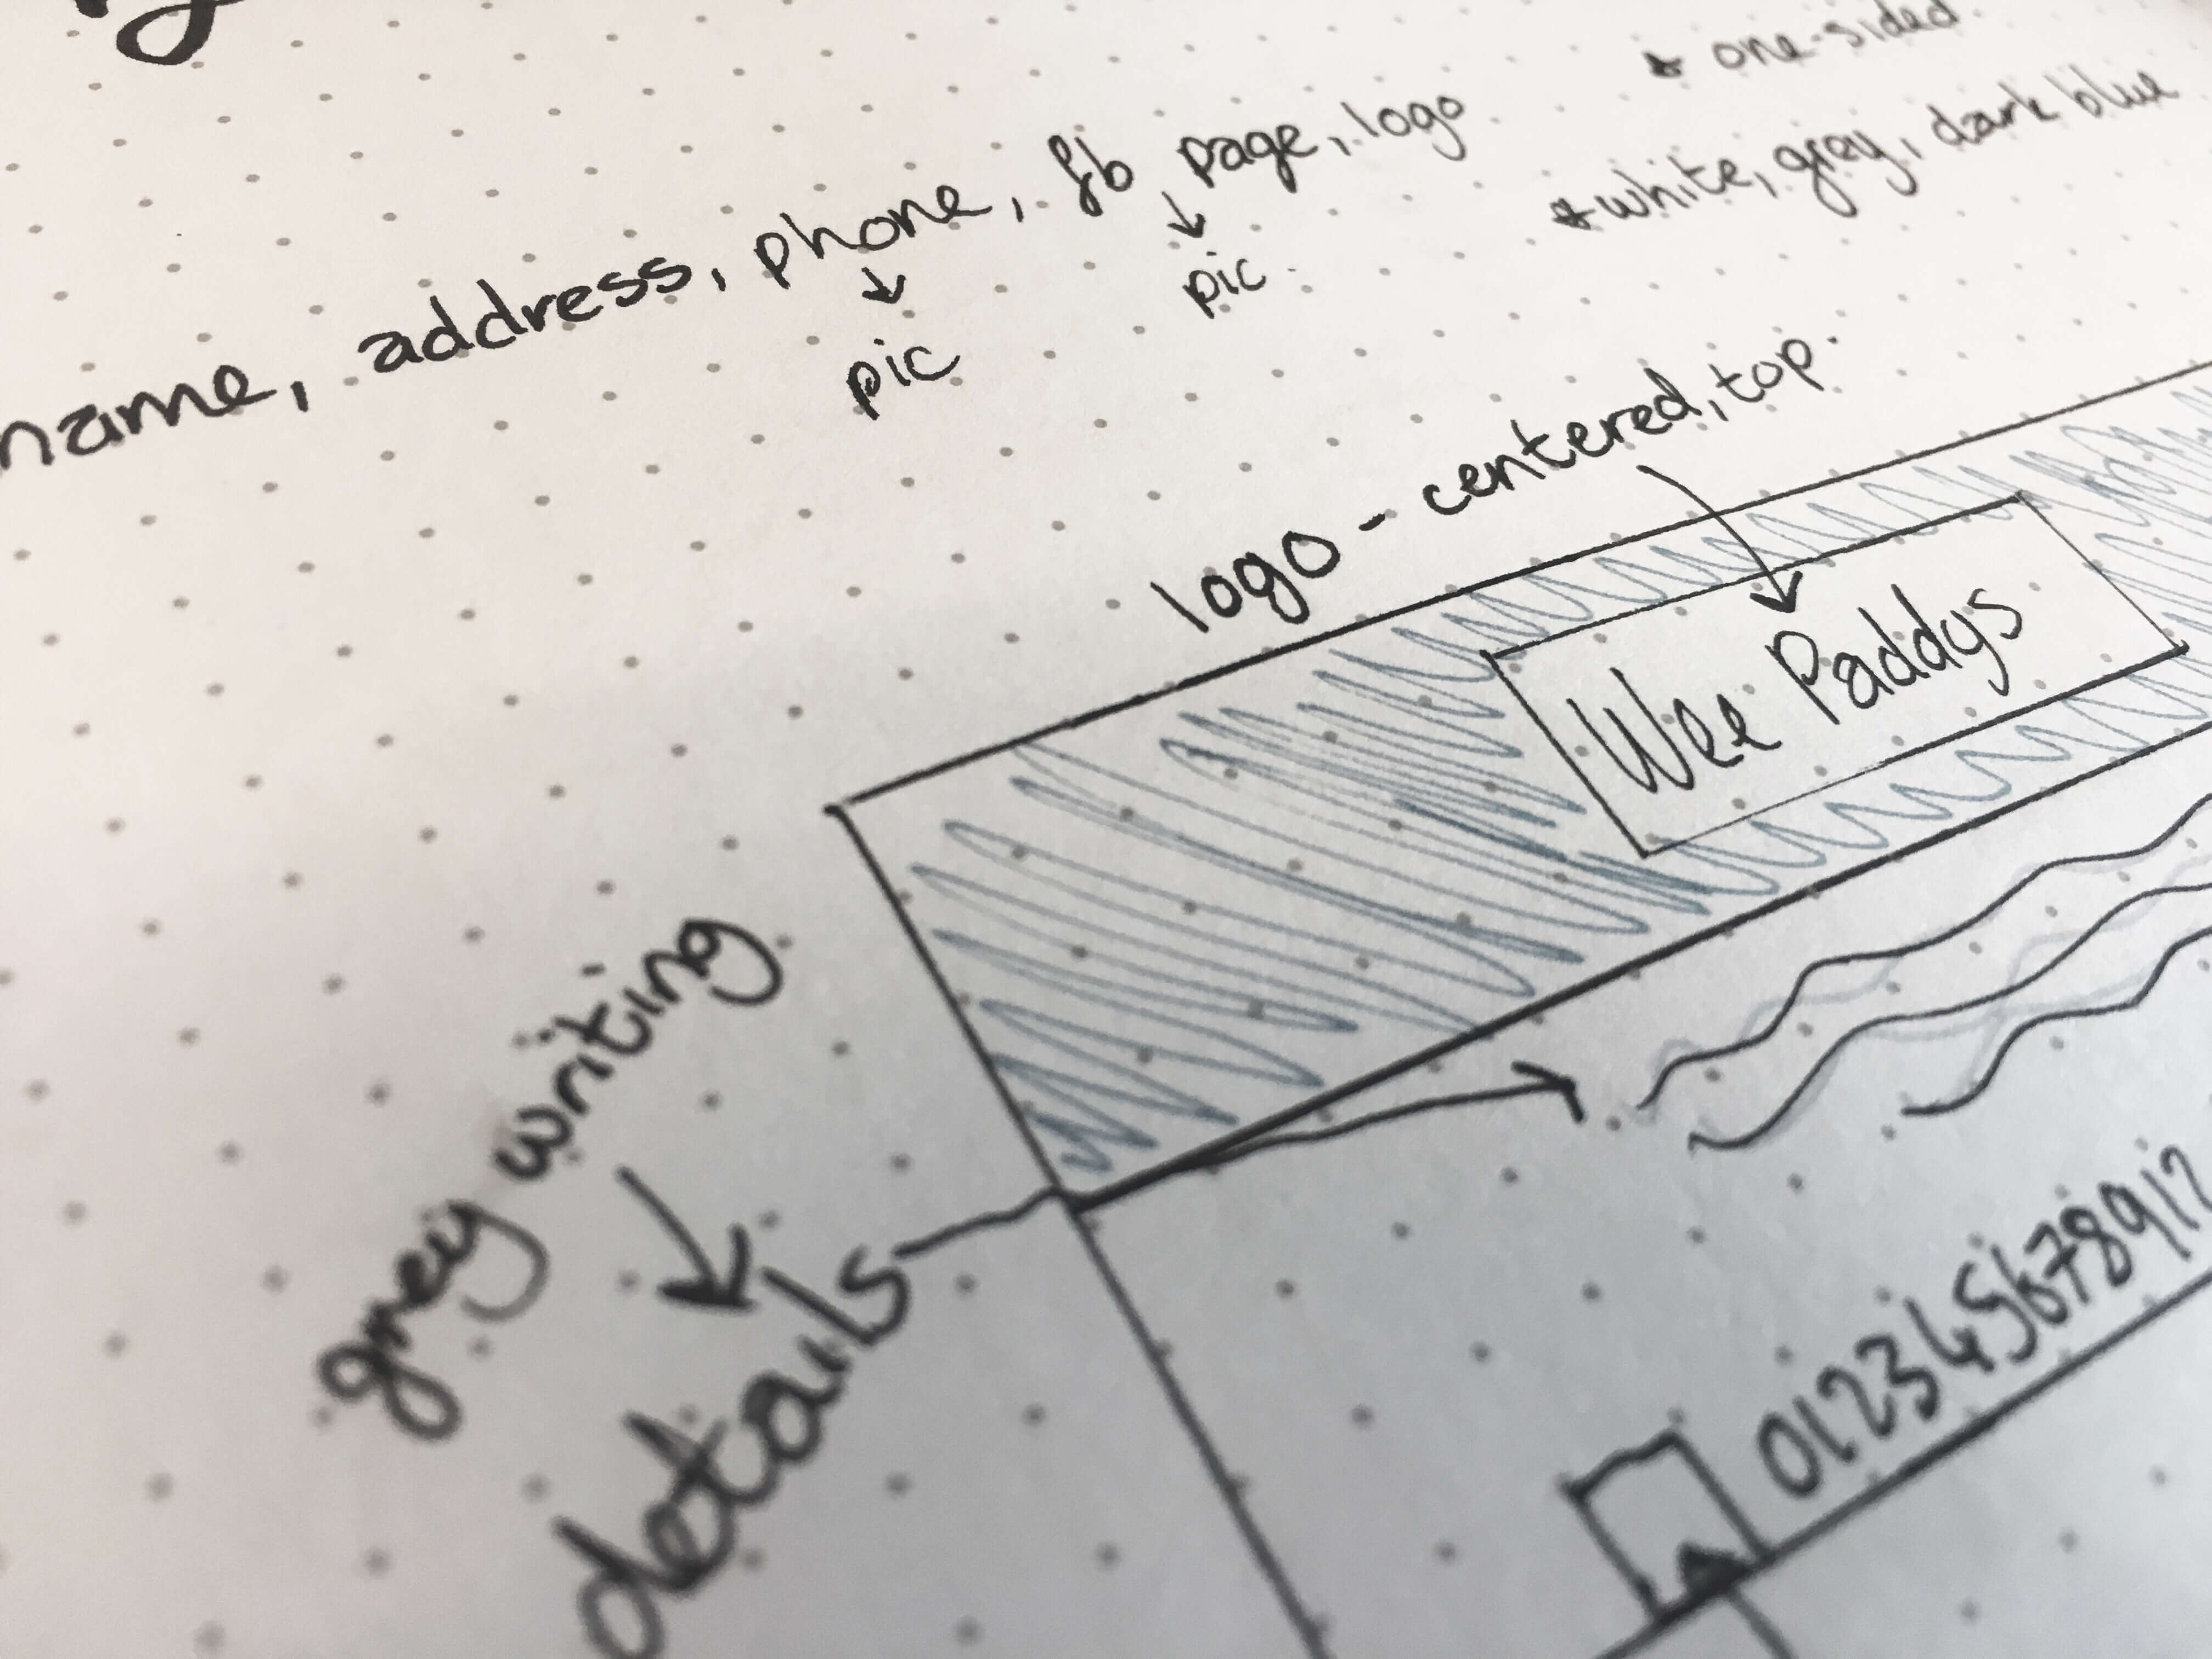 * one-sided
name, address, phone, fb page, logo
* white, grey, dark blue
pic
pic
logo - centered, top.
Wee Paddys
grey writing
details
012345678912